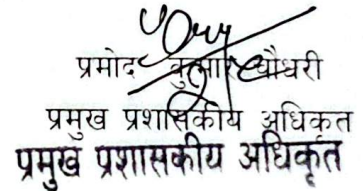 प्रमोद कुमार चौधरी
प्रमुख प्रशासकीय अधिकृत
प्रमुख प्रशासकीय अधिकृत